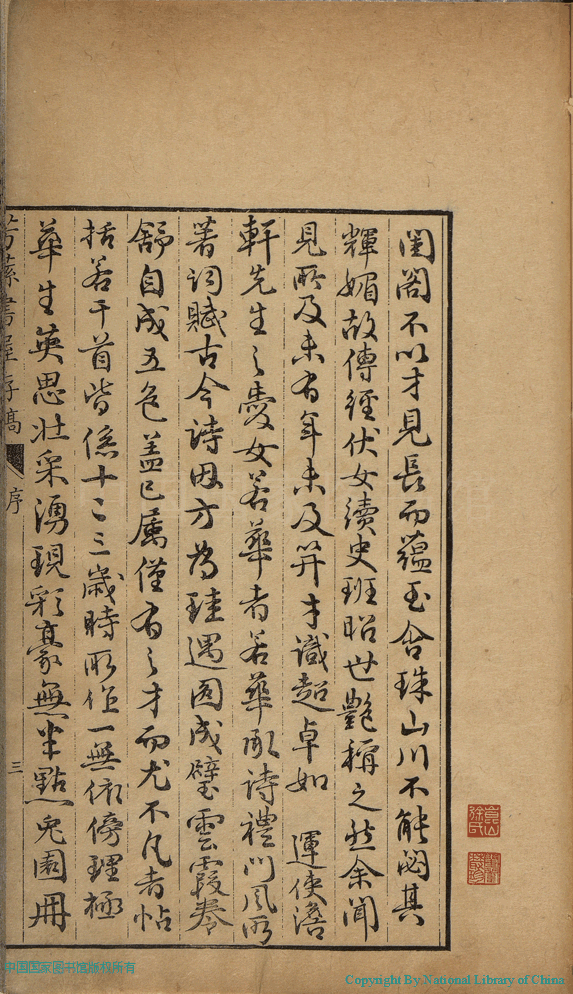 閨閤不以才見長而蘊玉含珠山川不能閟其
輝媚故傳經伏女續史班昭世艷稱之然余聞
見所及未有年未及笄才識超卓如 運使澹
軒先生之愛女若華者若華承詩禮門風所
著詞賦古今詩因方為珪遇圓成璧雲霞卷
舒自成五色蓋已屬僅有之才而尤不凡者帖
括若干首皆係十二三歲時所作一無依傍理極
華生英思壯采湧現彩豪無半點兔園冊
芳蓀書屋存稿
序
三
崑山徐氏
中国国家图书馆版权所有
Copyright By National Library of China